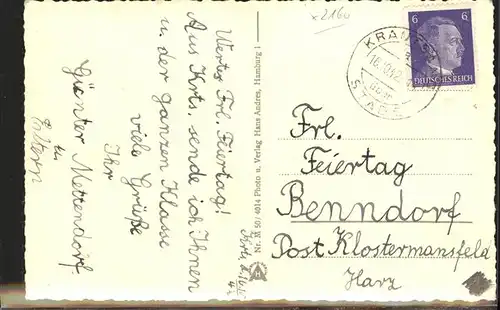 x2160
Wertes Frl. Feiertag!
Aus Krts. sende ich Ihnen
u. der ganzen Klasse
viele Grüße
Ihr
Günter Mettendorf
u.
Eltern
Nr. XI 50/4014 Photo u. Verlag Hans Andres, Hamburg 1
KRAN
16.10.42
STADE
6
6
DEUTSCHES REICH
Frl.
Feiertag
Benndorf
Post Klostermansfeld
Harz